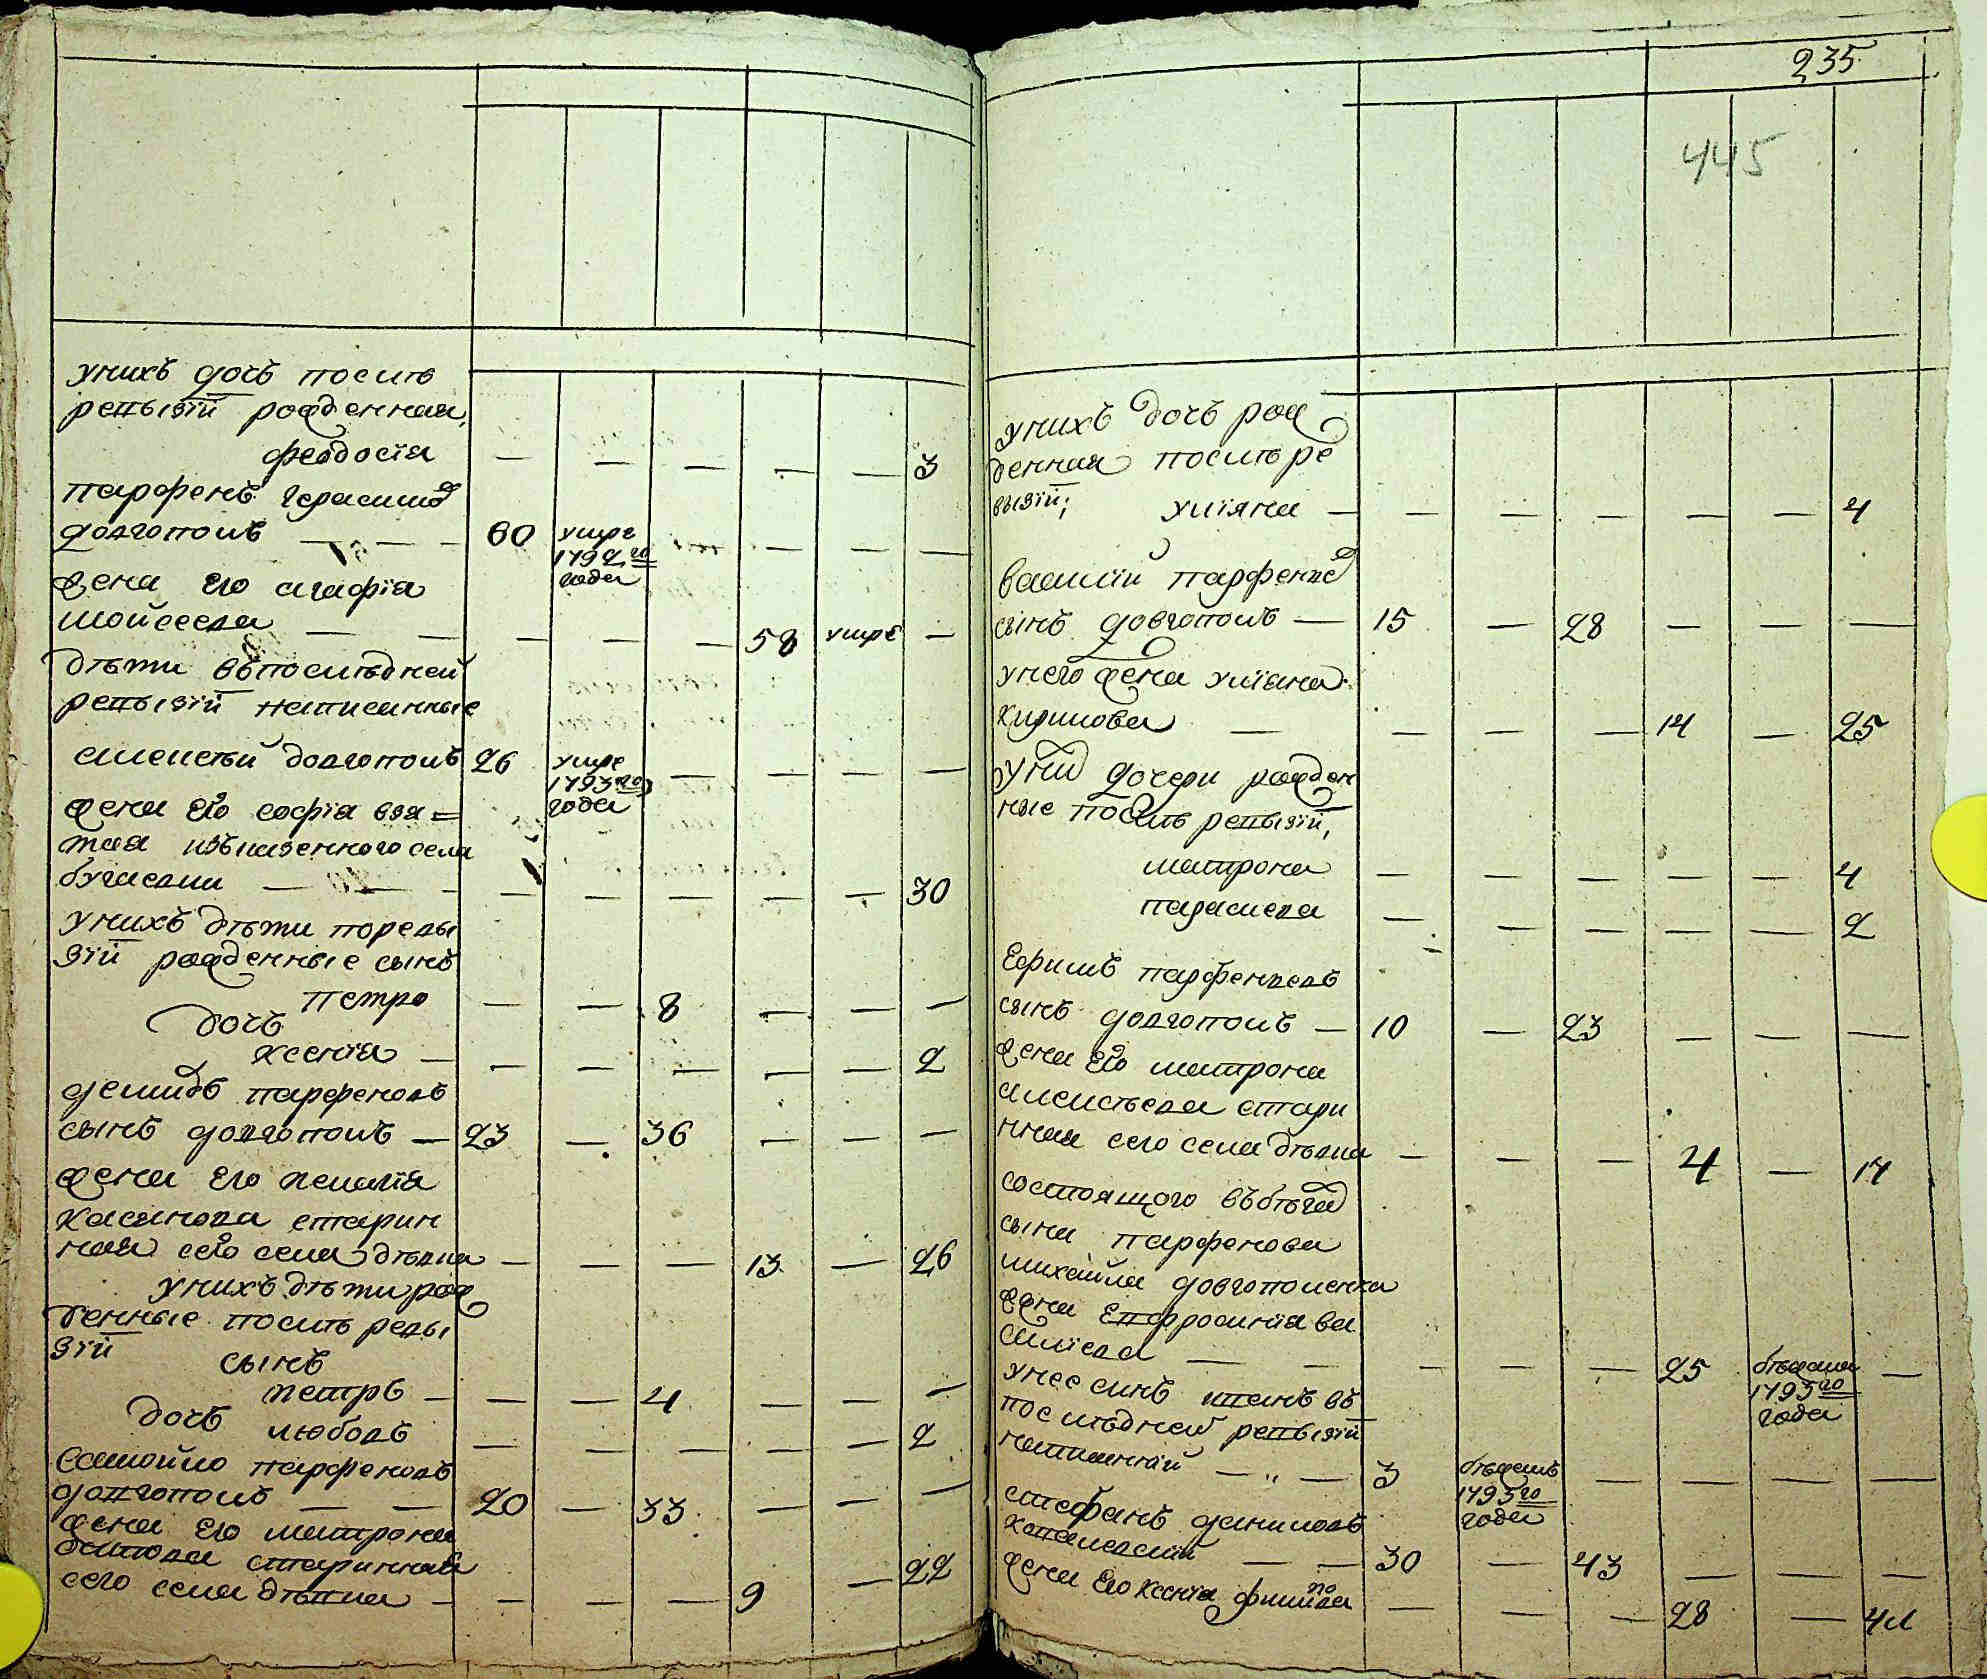 унихъ дочь послѣ
ревызіи рожденная,
феодосія — — — — — 3
парфенъ герасимов
долгополъ — — — 60 умре 1792го года — — — —
жена его агафія
мойсеева — — — — — 58 умре —
дѣти въпослѣдней
ревызіи написанные
алексѣй долгополъ 26 умре 1793го года — — — —
жена его софія взя=
тая изъказенного села
бугаевки — — — — — — 30
унихъ дѣти поревы
зіи рожденные сынъ
петро — — 8 — — —
дочь
ксенія — — — — — 2
демидъ парфеновъ
сынъ долгополъ — 23 — 36 — — —
жена его пелагія
касянова старин
ная сего села дѣвка — — — 13 — 26
унихъ дѣти рож
денные послѣ ревы
зіи сынъ
петръ — — — 4 — — —
дочь любовъ — — — — — 2
самойло парфеновъ
долгополъ — — 20 — 33 — — —
жена его матрона
старинная
сего села дѣвка — — — — 9 — 22
235
445
унихъ дочь рож
денная послѣ ре
вызіи; уліяна — — — — — — 4
василій парфенов
сынъ довгополъ — 15 — 28 — — —
унего жена уліяна
кирилова — — — — 14 — 25
унихъ дочери рожден
ные послѣ ревызіи,
матрона — — — — — 4
параскева — — — — — 2
Ефимъ парфеновъ
сынъ долгополъ — 10 — 23 — — —
жена его матрона
алексѣева стари
нная сего села дѣвка — — — 4 — 17
состоящого въбѣгах
сына парфенова
михайла довгополенка
жена Евфросинія ва
силіева — — — — — 25 бѣжала 1795го года —
унее синъ иванъ въ
послѣдней ревызіи
написанній — „ — 3 бѣжалъ 1795го года — — — —
стефанъ даниловъ
— — 30 — 43 — — —
жена его ксенія филипова — — — 28 — 41